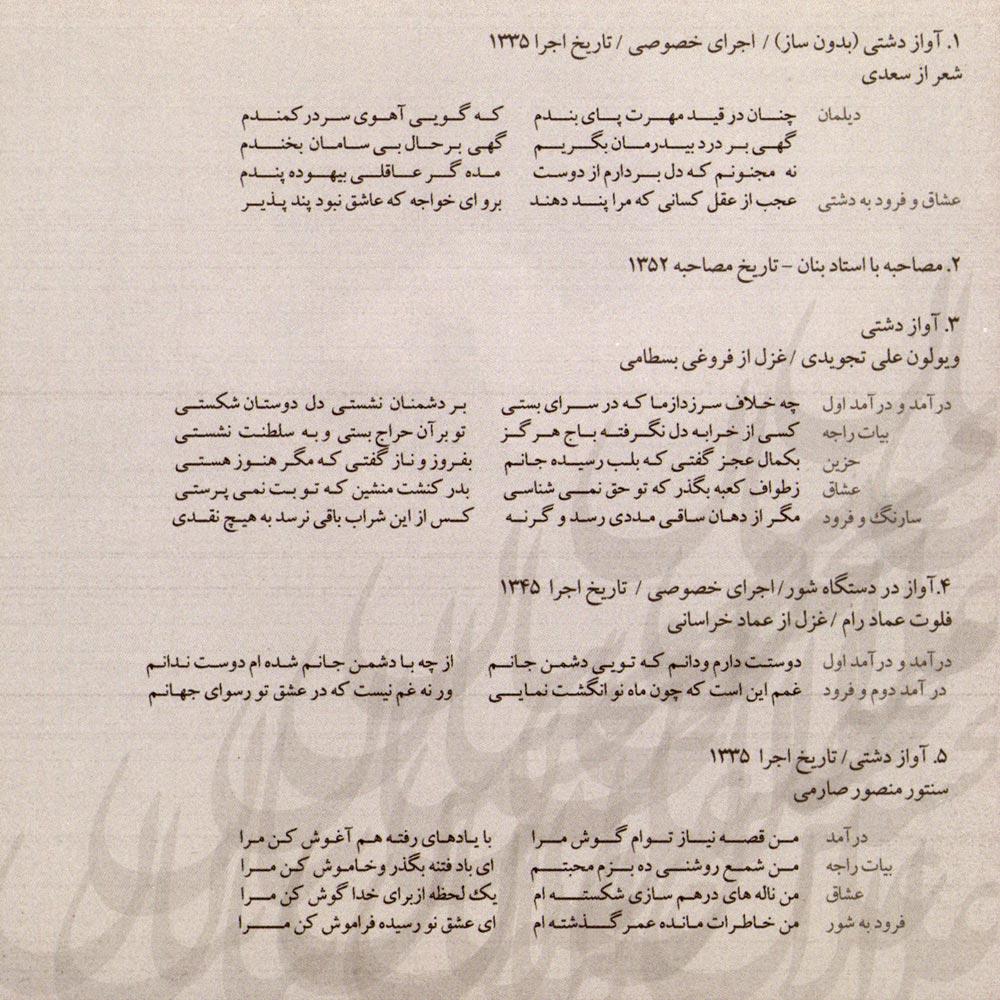 ۱. آواز دشتی (بدون ساز) / اجرای خصوصی / تاریخ اجرا ۱۳۳۵
شعر از سعدی
دیلمان چنان در قید مهرت پای بندم که گویی آهوی سر در کمندم
گهی بر درد بیدرمان بگریم گهی بر حال بی سامان بخندم
نه مجنونم که دل بردارم از دوست مده گر عاقلی بیهوده پندم
عشاق و فرود به دشتی عجب از عقل کسانی که مرا پند دهند برو ای خواجه که عاشق نبود پند پذیر
۲. مصاحبه با استاد بنان - تاریخ مصاحبه ۱۳۵۲
۳. آواز دشتی
ویولون علی تجویدی / غزل از فروغی بسطامی
درآمد و درآمد اول چه خلاف سرزدازما که در سرای بستی بر دشمنان نشستی دل دوستان شکستی
بیات راجه کسی از خرابه دل نگرفته باج هرگز تو بر آن حراج بستی و به سلطنت نشستی
حزین بکمال عجز گفتی که بلب رسیده جانم بفروز و ناز گفتی که مگر هنوز هستی
عشاق زطواف کعبه بگذر که تو حق نمی شناسی بدر کنشت منشین که تو بت نمی پرستی
سارنگ و فرود مگر از دهان ساقی مددی رسد و گرنه کس از این شراب باقی نرسد به هیچ نقدی
۴.آواز در دستگاه شور/ اجرای خصوصی / تاریخ اجرا ۱۳۴۵
فلوت عماد رام / غزل از عماد خراسانی
درآمد و درآمد اول دوستت دارم ودانم که تویی دشمن جانم از چه با دشمن جانم شده ام دوست ندانم
در آمد دوم و فرود غمم این است که چون ماه نو انگشت نمایی ور نه غم نیست که در عشق تو رسوای جهانم
۵. آواز دشتی/ تاریخ اجرا ۱۳۳۵
سنتور منصور صارمی
درآمد من قصه نیاز توام گوش مرا با یادهای رفته هم آغوش کن مرا
بیات راجه من شمع روشنی ده بزم محبتم ای باد فتنه بگذر وخاموش کن مرا
عشاق من ناله های درهم سازی شکسته ام یک لحظه ازبرای خدا گوش کن مرا
فرود به شور من خاطرات مانده عمر گذشته ام ای عشق نو رسیده فراموش کن مرا